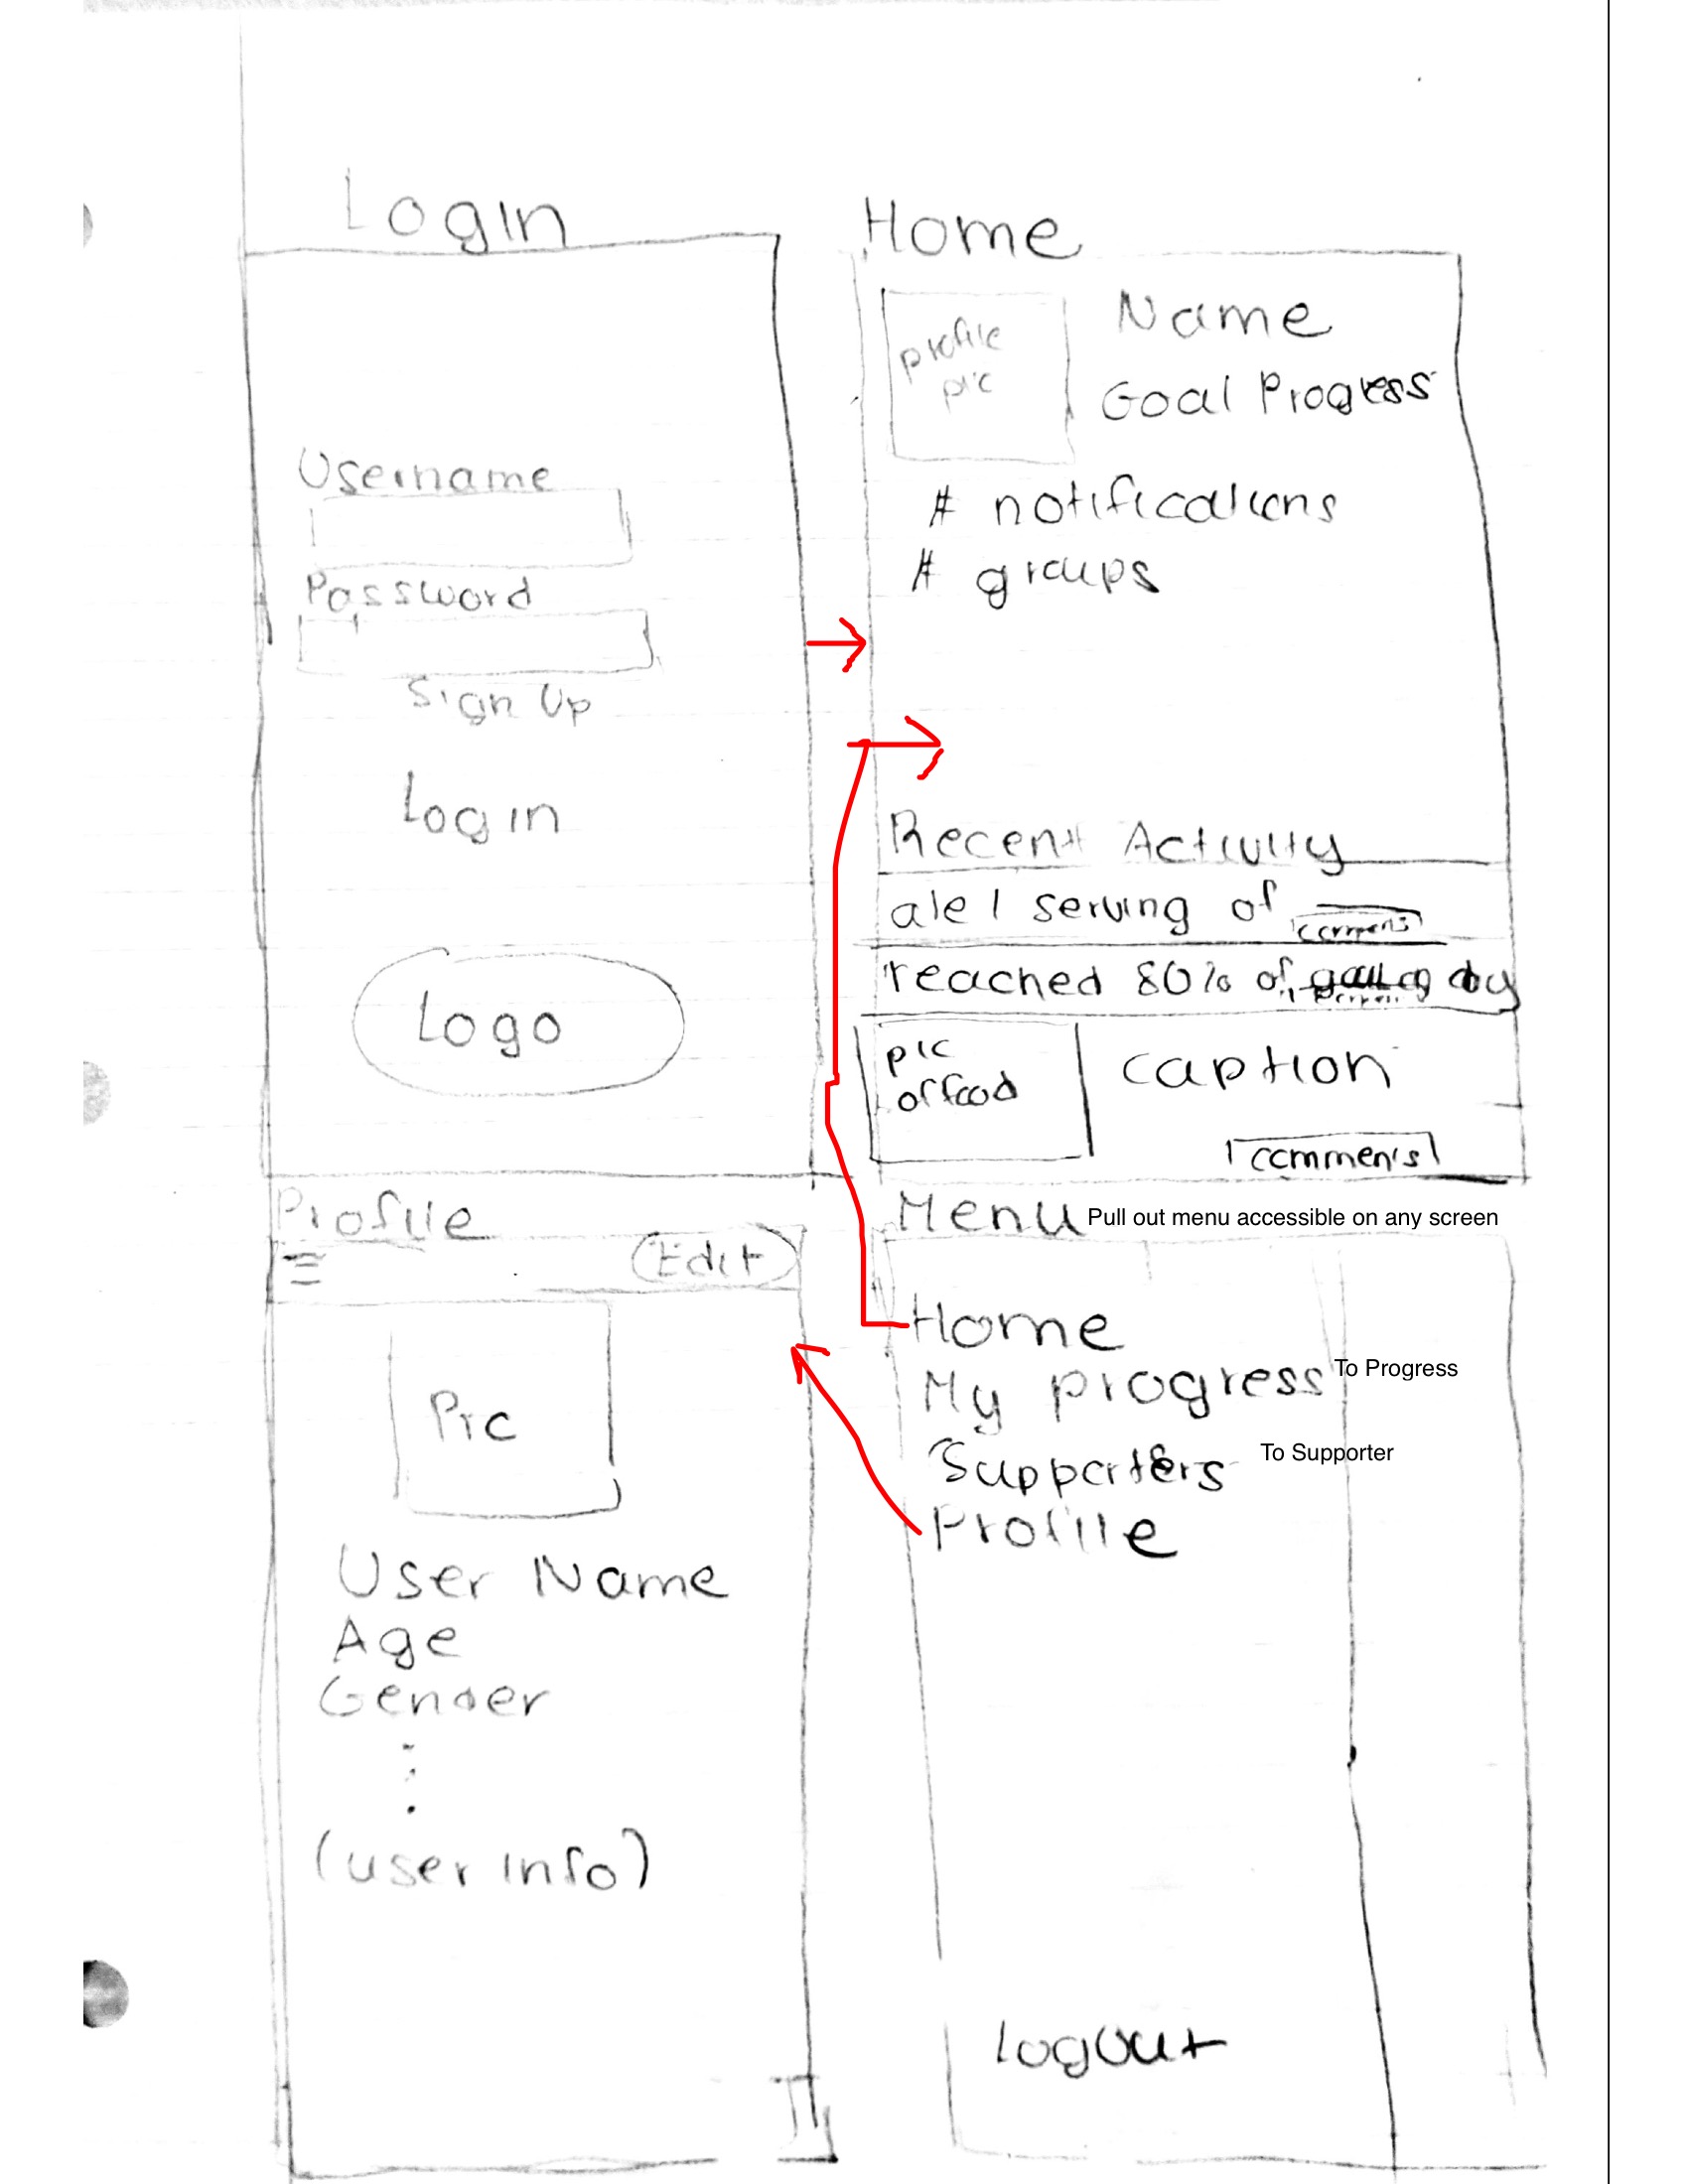 Login
Username
Password
Sign Up
Login
Logo
Home
profile
pic
Name
Goal Progress
# notifications
# groups
Recent Activity
ate 1 serving of
comments
reached 80% of day
pic
of food
caption
comments
Profile
Edit
Pic
User Name
Age
Gender
(user info)
Menu Pull out menu accessible on any screen
Home
My progress To Progress
Supporters To Supporter
Profile
logout